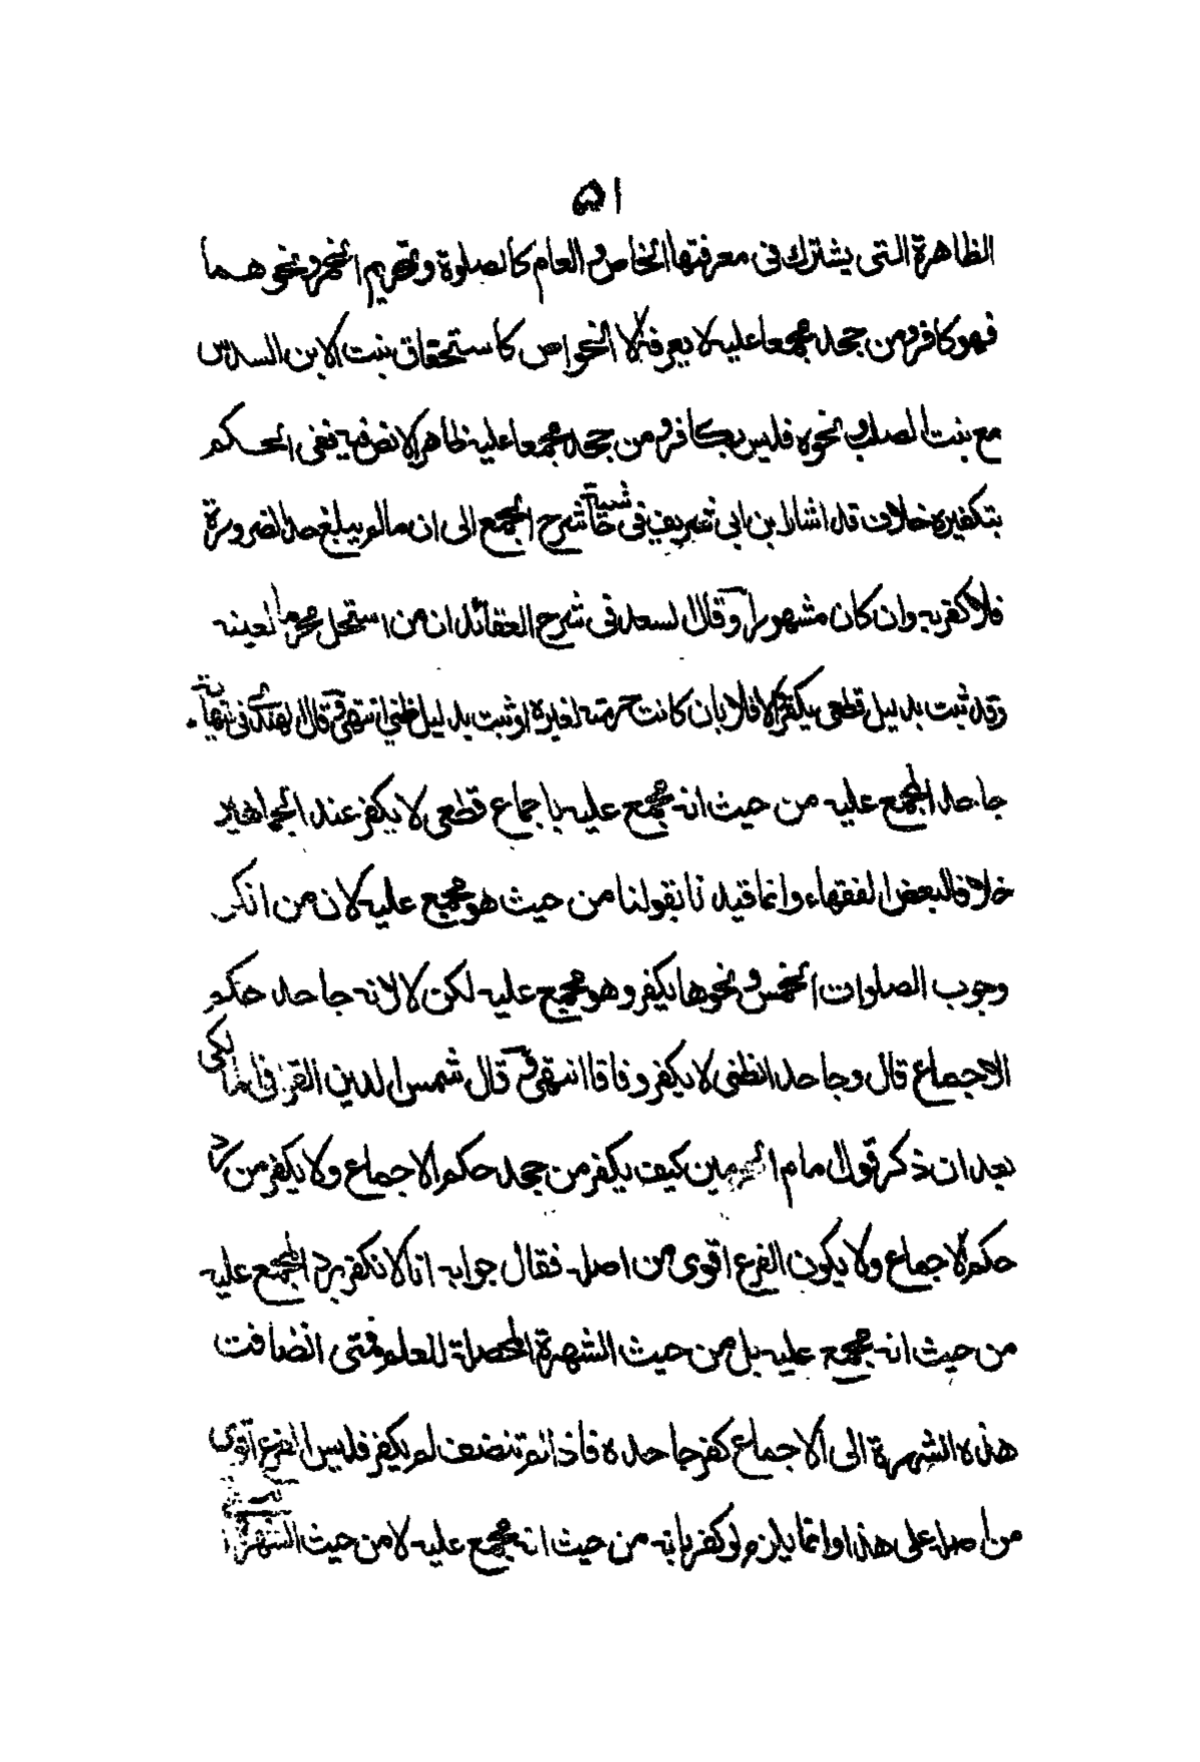 ٥١
الظاهرة التى يشترك فى معرفتها الخاص والعام كالصلوة وتحريم الخمر ونحوهما
فهو كافر ومن جحد مجمعا عليه لا يعرفه الا الخواص كاستحقاق بنت الابن السدس
مع بنت الصلب ونحوه فليس بكافر ومن جحد مجمعا عليه ظاهرا لا نص فيه ففى الحكم
بتكفيره خلاف قد اشار ابن ابى شريف فى حاشية شرح الجمع الى ان مالم يبلغ حد الضرورة
فلا كفر به وان كان مشهورا وقال السعد فى شرح العقائد ان من استحل محرما لعينه
وقد ثبت بدليل قطعى يكفر والا فلا بان كانت حرمته لغيره او ثبت بدليل ظنى انتهى وقال الهندى فى نهايته
جاحد المجمع عليه من حيث انه مجمع عليه باجماع قطعى لا يكفر عند الجماهير
خلافا لبعض الفقهاء وانما قيدنا بقولنا من حيث هو مجمع عليه لان من انكر
وجوب الصلوات الخمس ونحوها يكفر وهو مجمع عليه لكن لا لانه جاحد حكم
الاجماع قال وجاحد الظنى لا يكفر وفاقا انتهى وقال شمس الدين القرافى المالكى
بعد ان ذكر قول امام الحرمين كيف يكفر من جحد حكم الاجماع ولا يكفر من رد
حكم الاجماع ولا يكون الفرع اقوى من اصله فقال جوابه انا لا نكفر برد المجمع عليه
من حيث انه مجمع عليه بل من حيث الشهرة المحصلة للعلم فمتى انضافت
هذه الشهرة الى الاجماع كفر جاحده فاذا لم تنضف لم يكفر فليس الفرع اقوى
من اصله على هذا وانما يلزم لو كفر بانه من حيث انه مجمع عليه لا من حيث الشهرة